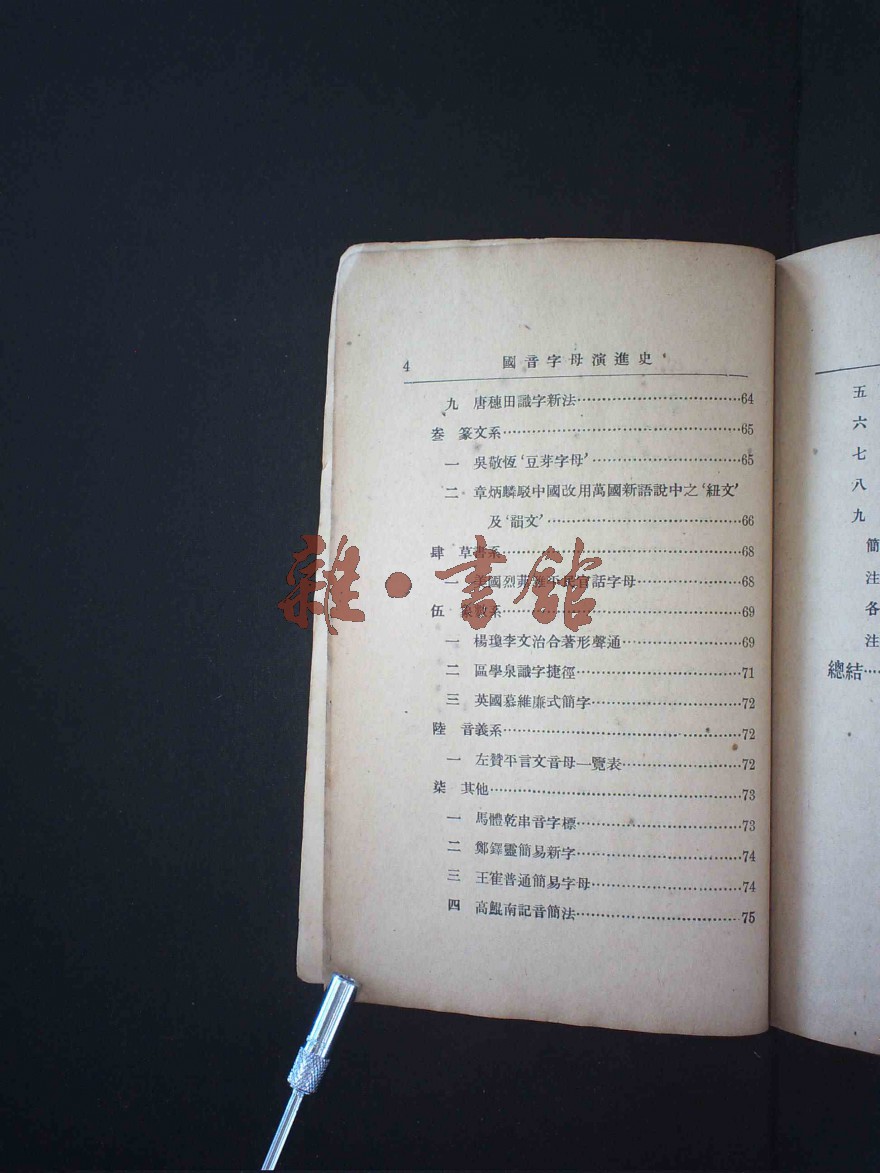 4 國音字母演進史
九 唐穗田識字新法……64
叁 篆文系……65
一 吳敬恆‘豆芽字母’……65
二 章炳麟駁中國改用萬國新語說中之‘紐文’
及‘韻文’……66
肆 草書系……68
一 美國烈菲雖平民官話字母……68
伍 象數系……69
一 楊瓊李文治合著形聲通……69
二 區學泉識字捷徑……71
三 英國慕維廉式簡字……72
陸 音義系……72
一 左贊平言文音母一覽表……72
柒 其他……73
一 馬體乾串音字標……73
二 鄭鐸靈簡易新字……74
三 王崔普通簡易字母……74
四 高鯤南記音簡法……75
五
六
七
八
九
簡
注
各
注
總結……
雜·書館